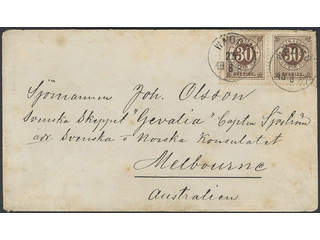 30 30
SVERIGE
Sjömannen Joh. Olsson
Svenska Skeppet "Gevalia" Capten Sjöström
adr Svenska o Norska Konsulatet
Melbourne
Australien